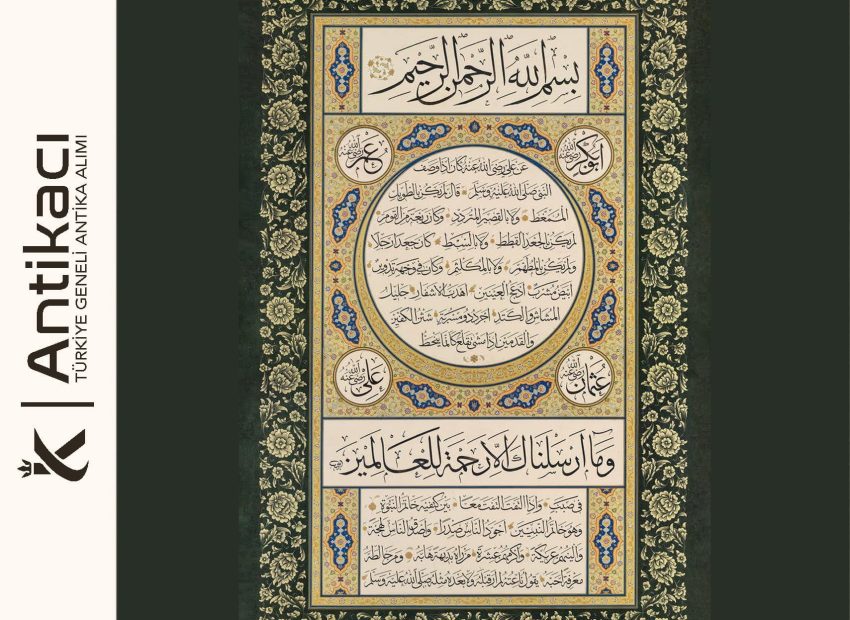 Antikacı
TÜRKİYE GENELİ ANTİKA ALIMI
بسم الله الرحمن الرحيم
ابو بكر رضي الله عنه
عمر رضي الله عنه
عن علي رضي الله عنه كان اذا وصف
النبي صلى الله عليه وسلم قال لم يكن بالطويل
الممغط ولا بالقصير المتردد وكان ربعة من القوم
لم يكن بالجعد القطط ولا بالسبط كان جعدا رجلا
ولم يكن بالمطهم ولا بالمكلثم وكان في وجهه تدوير
ابيض مشرب ادعج العينين اهدب الاشفار جليل
المشاش والكتد اجرد ذو مسربة شثن الكفين
والقدمين اذا مشى تقلع كانما ينحط
عثمان رضي الله عنه
علي رضي الله عنه
وما ارسلناك الا رحمة للعالمين
في صبب واذا التفت التفت معا بين كتفيه خاتم النبوة
وهو خاتم النبيين اجود الناس صدرا واصدق الناس لهجة
والينهم عريكة واكرمهم عشرة من راه بديهة هابه ومن خالطه
معرفة احبه يقول ناعته لم ار قبله ولا بعده مثله صلى الله عليه وسلم